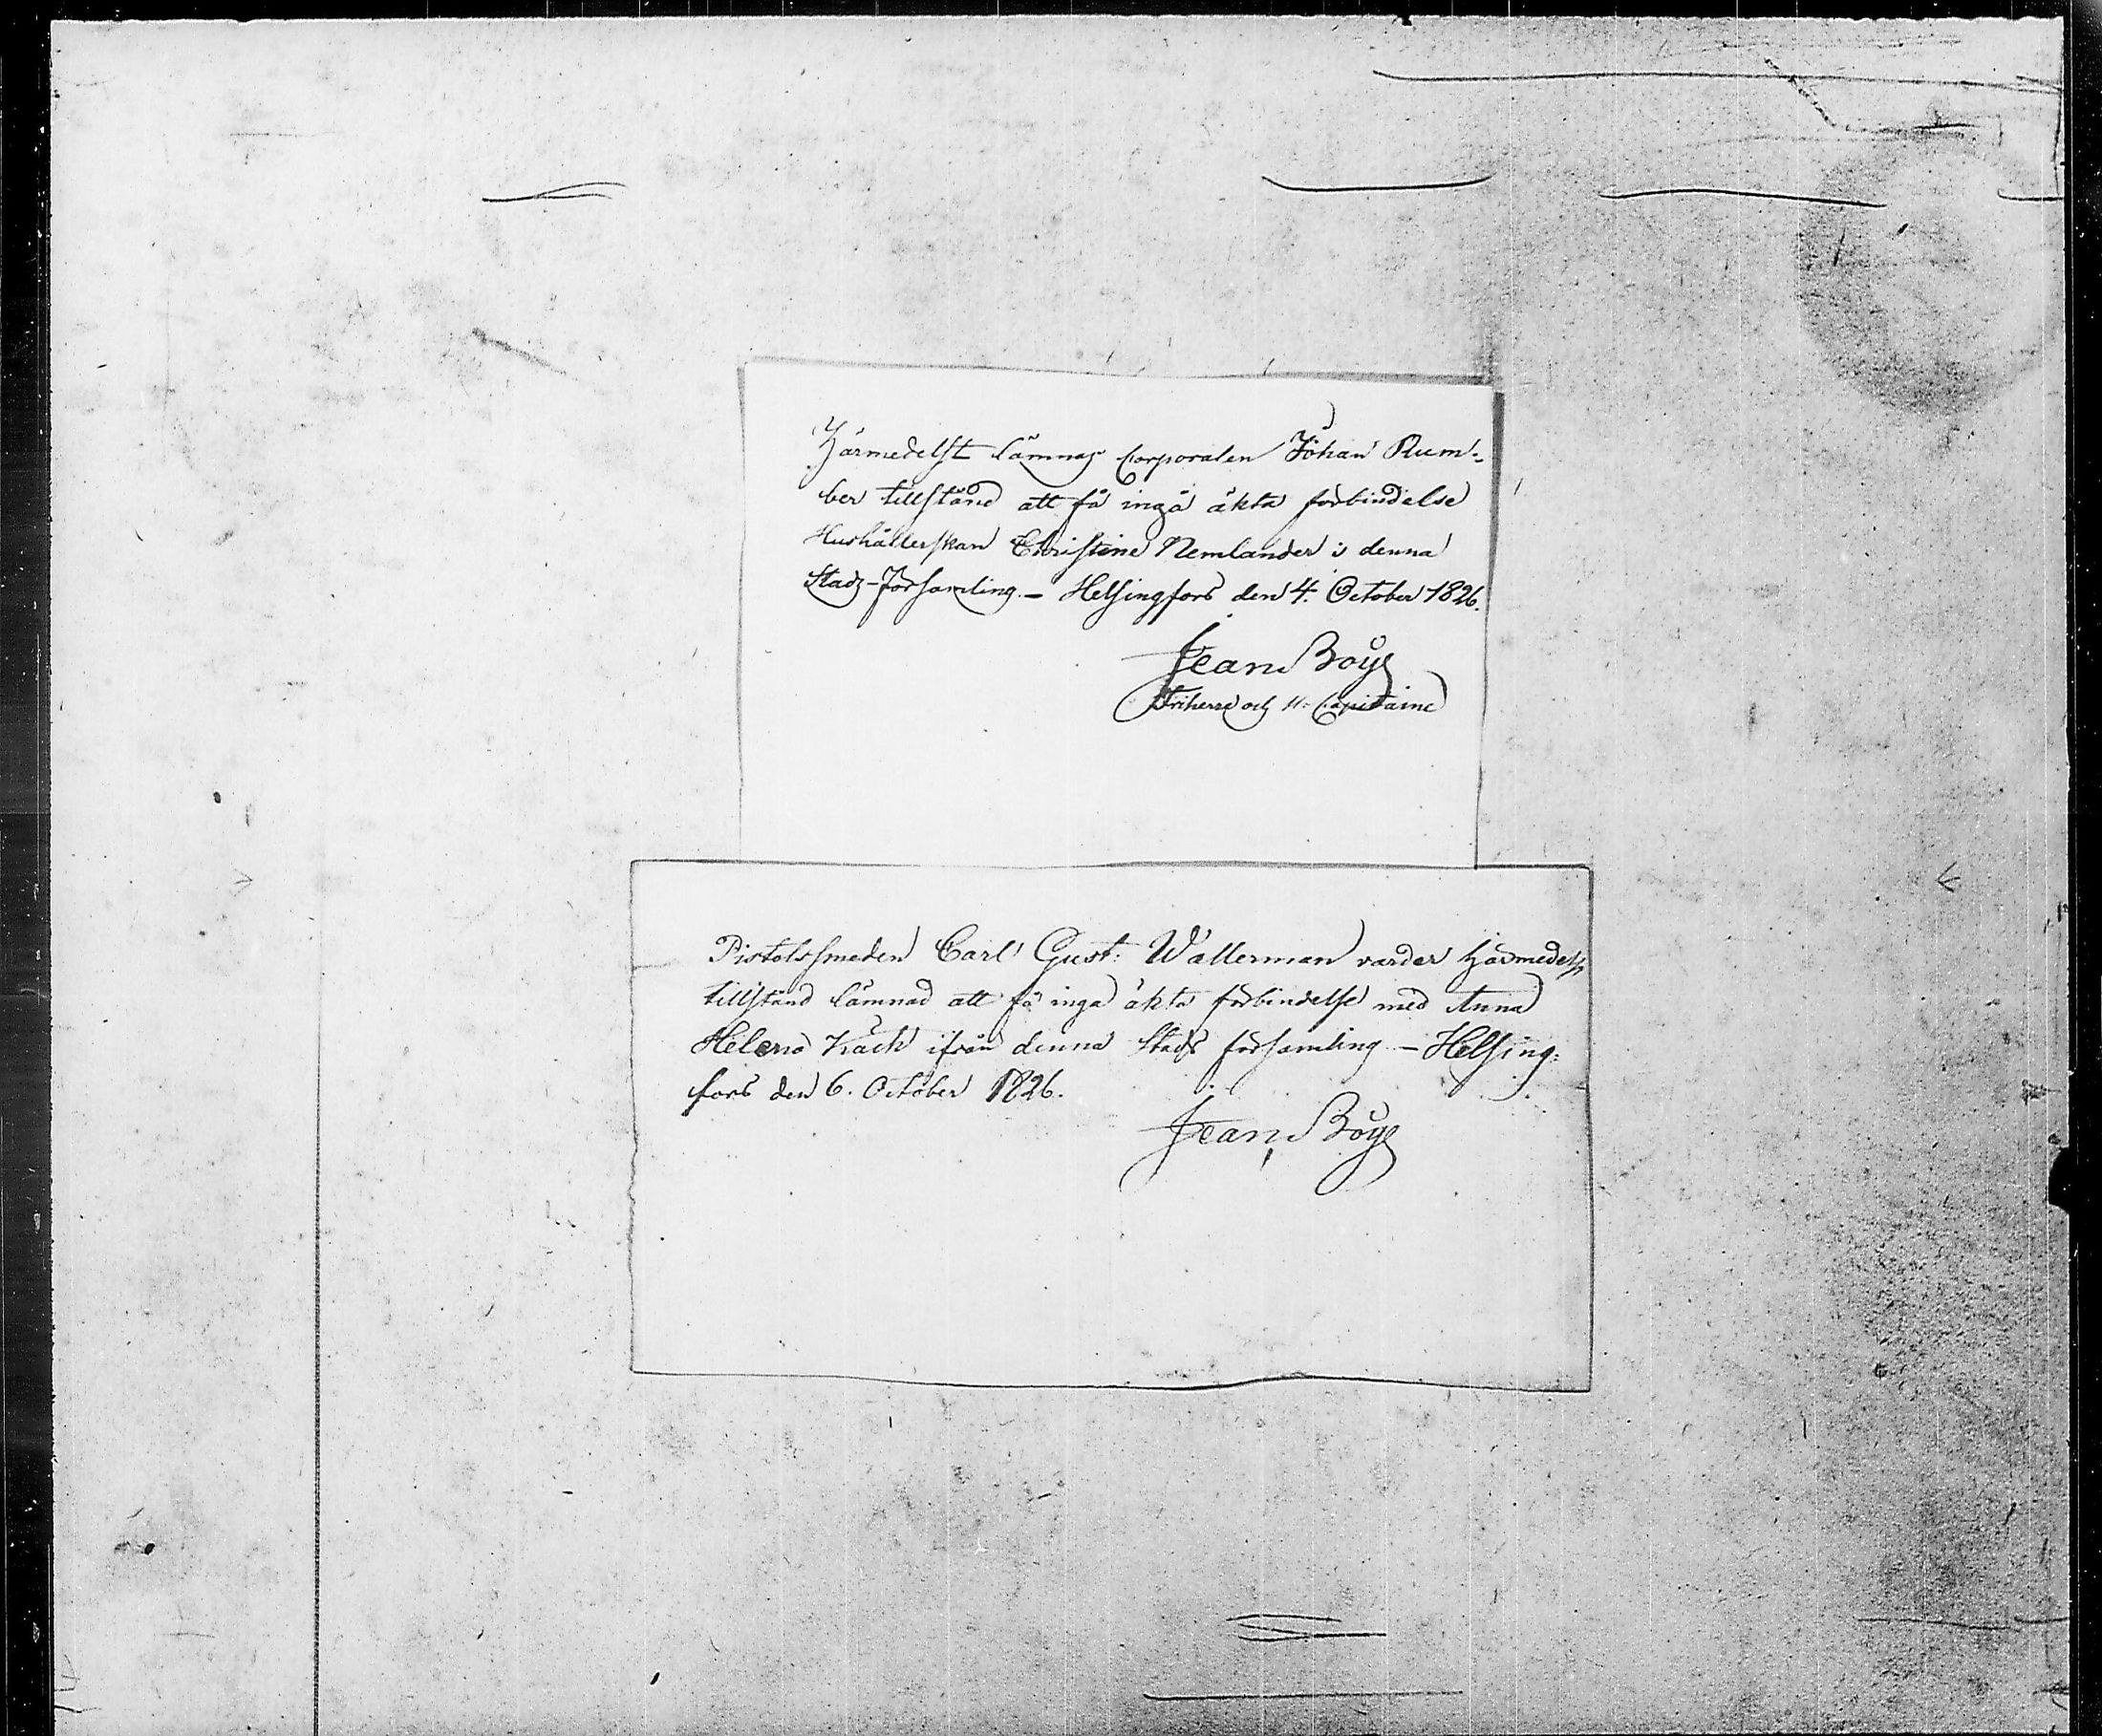 Härmedelst lämnas Corporalen Johan Rum-
ber tillstånd att få ingå äkta förbindelse
Hushållerskan Christine Nemlander i denna
Stads-Församling. – Helsingfors den 4. October 1826.
Jean Boije
Friherre och Capitaine
Pistolsmeden Carl Gust: Wallerman varder härmedelst
tillstånd lämnad att få inga äkta förbindelse med Anna
Helena Käck ifrån denna Stads församling – Helsing-
fors den 6. October 1826.
Jean Boije